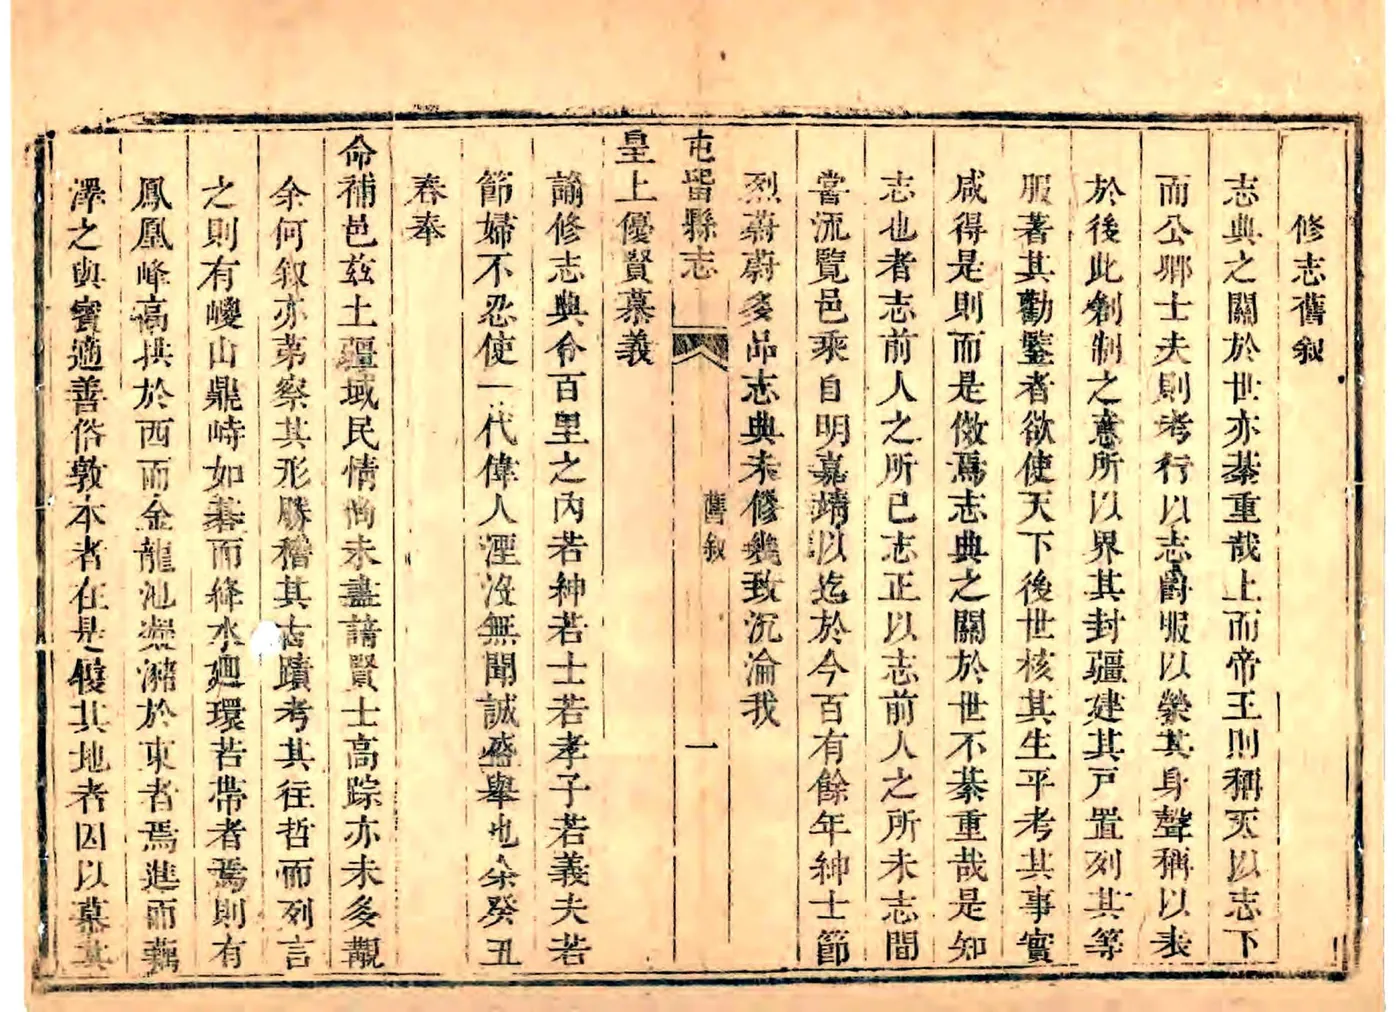 修志舊叙
志典之關於世亦綦重哉上而帝王則稱天以志下
而公卿士夫則考行以志爵服以榮其身聲稱以表
於後此創制之意所以界其封疆建其戸置列其等
服著其勸鑒者欲使天下後世核其生平考其事實
咸得是則而是傚焉志典之關於世不綦重哉是知
志也者志前人之所已志正以志前人之所未志間
嘗流覽邑乘自明嘉靖以迄於今百有餘年紳士節
烈蔚蔚多品志典未修幾致沉淪我
屯留縣志
舊叙
一
皇上優賢慕義
諭修志典令百里之內若紳若士若孝子若義夫若
節婦不忍使一代偉人湮沒無聞誠盛舉也余癸丑
春奉
命補邑茲土疆域民情尚未盡諳賢士高踪亦未多覯
余何叙亦第察其形勝稽其古蹟考其往哲而列言
之則有嶐山鼎峙如碁而絳水廻環若帶者焉則有
鳳凰峰高拱於西而金龍池瀠瀦於東者焉進而藕
澤之輿賓適善俗敦本者在是履其地者因以慕其